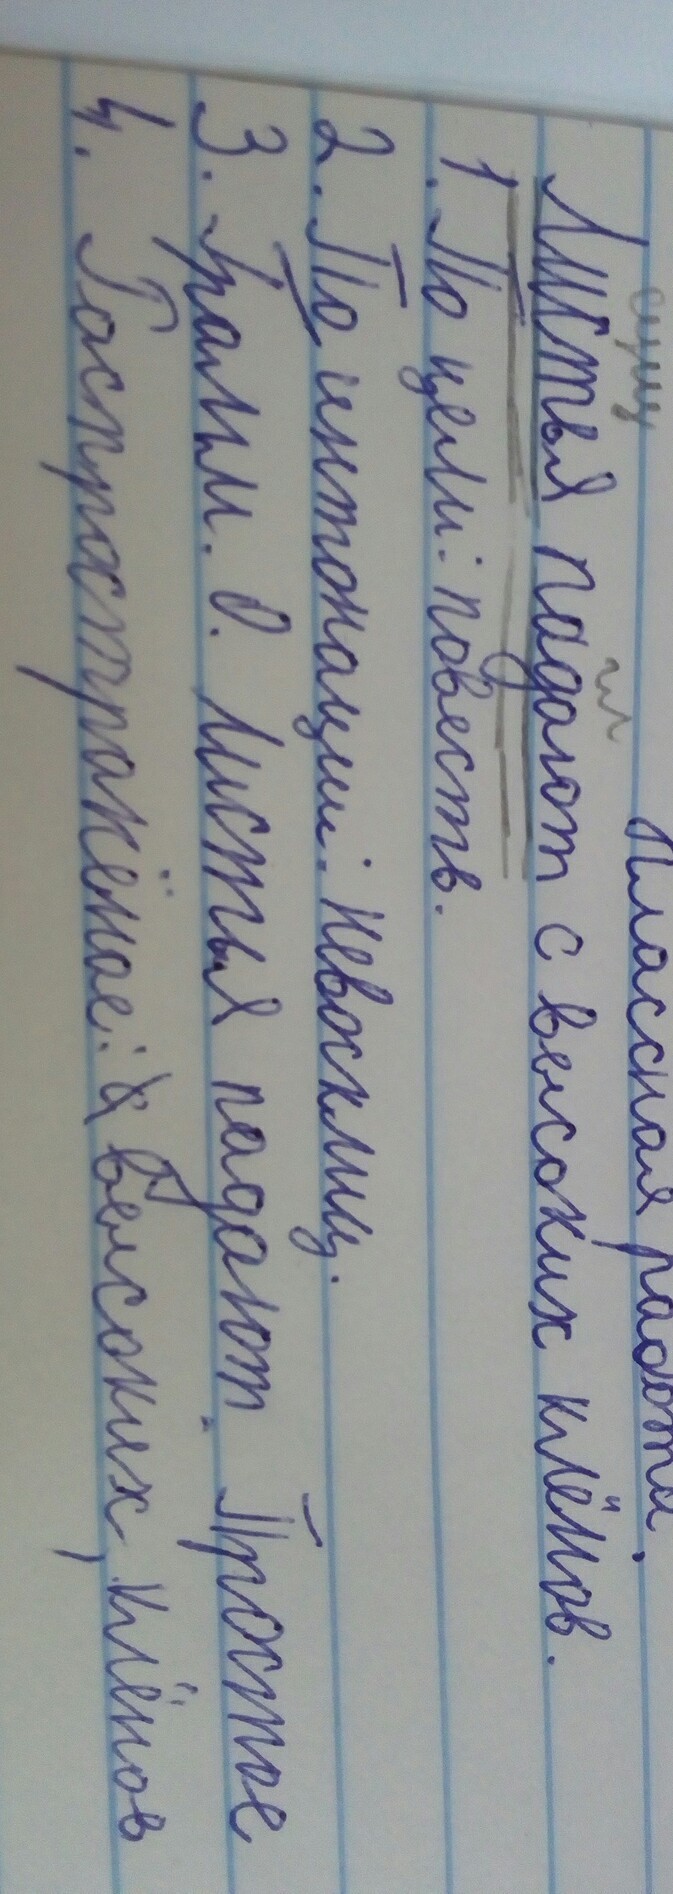 Классная работа.
сущ гл
Листья падают с высоких клёнов.
1. По цели: повеств.
2. По интонации: невосклиц.
3. Грам. О. Листья падают. Простое
4. Распространёное: высоких, клёнов